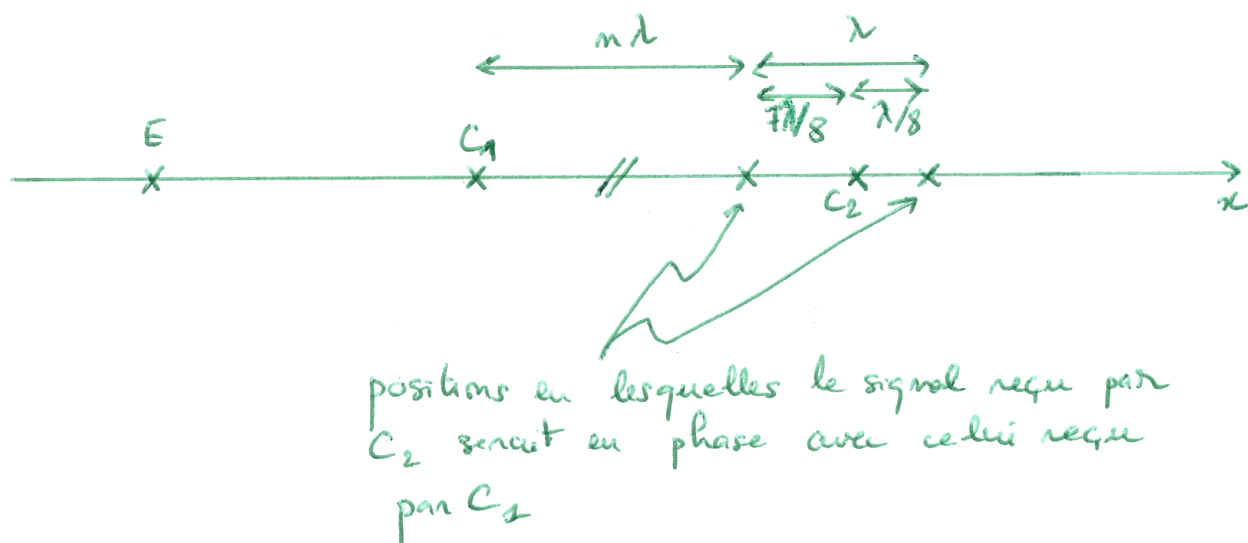 nλ λ
7λ/8 λ/8
E C₁
C₂ x
positions en lesquelles le signal reçu par
C₂ serait en phase avec celui reçu
par C₁